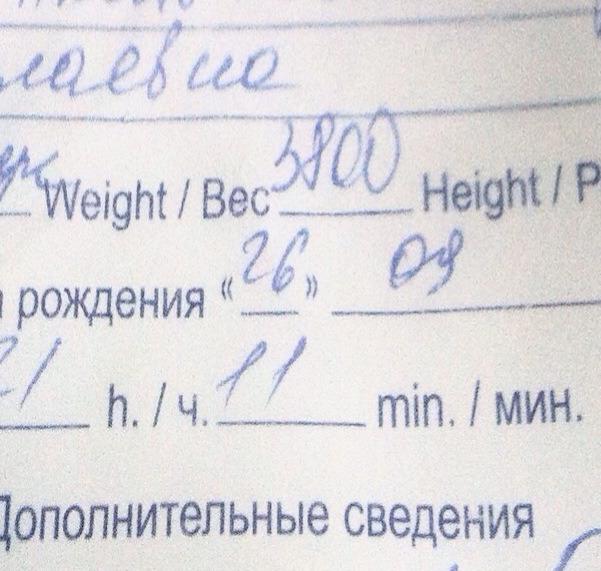 лаевна
Weight / Вес 3800 Height / Р
рождения «26» 09
21 h. / ч. 11 min. / мин.
Дополнительные сведения